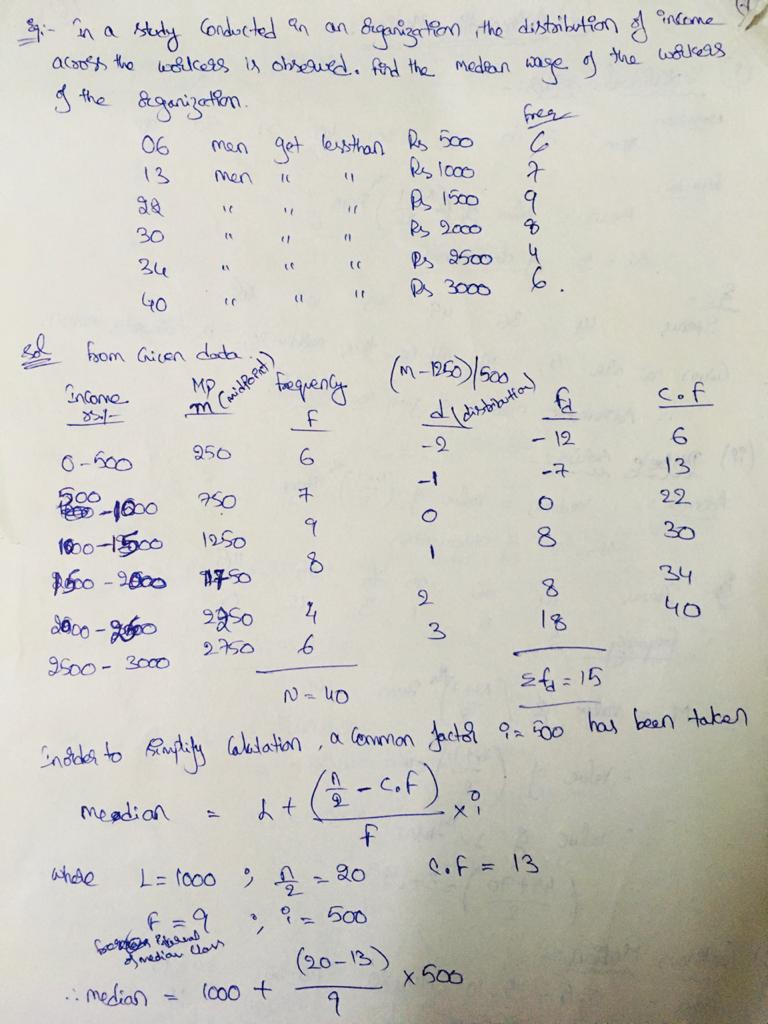 Eg:- In a study Conducted in an organization, the distribution of income
across the workers is observed. Find the median wage of the workers
of the organization.
freq
06 men get lessthan Rs 500 6
13 men " " Rs 1000 7
22 " " " Rs 1500 9
30 " " " Rs 2000 8
34 " " " Rs 2500 4
40 " " " Rs 3000 6.
Sol from Given data.
Income MP m (midpoint) frequency f (m-1250)/500 d (distribution) fd C.f
0-500 250 6 -2 -12 6
500-1000 750 7 -1 -7 13
1000-1500 1250 9 0 0 22
1500-2000 1750 8 1 8 30
2000-2500 2250 4 2 8 34
2500-3000 2750 6 3 18 40
N=40 Σfd=15
Inorder to Simplify Calculation, a Common factor i=500 has been taken
median = L + (n/2 - C.f)/f × i
where L=1000 ; n/2 = 20 C.f = 13
F=9 ; i = 500
of median class
∴ median = 1000 + (20-13)/9 × 500